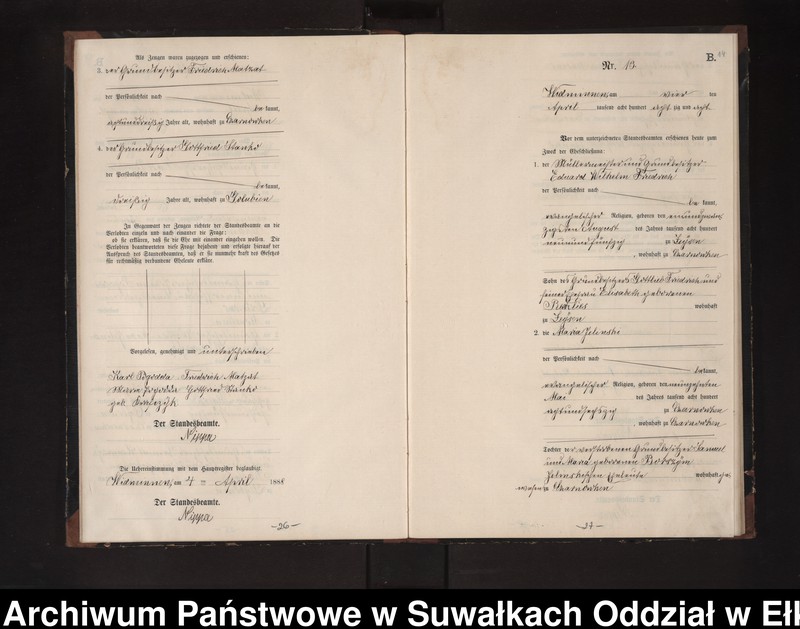 Als Zeugen waren zugezogen und erschienen:
3. der Grundbesitzer Friedrich Matzat
der Persönlichkeit nach
be kannt,
achtunddreißig Jahre alt, wohnhaft zu Czarnowken
4. der Grundbesitzer Gottfried Slanko
der Persönlichkeit nach
be kannt,
dreißig Jahre alt, wohnhaft zu Golubien
In Gegenwart der Zeugen richtete der Standesbeamte an die
Verlobten einzeln und nach einander die Frage:
ob sie erklären, daß sie die Ehe mit einander eingehen wollen. Die
Verlobten beantworteten diese Frage bejahend und erfolgte hierauf der
Ausspruch des Standesbeamten, daß er sie nunmehr kraft des Gesetzes
für rechtmäßig verbundene Eheleute erkläre.
Vorgelesen, genehmigt und unterschrieben
Karl Pogodda Friedrich Matzat
Maria Pogodda Gottfried Slanko
geb. Kowalczyk
Der Standesbeamte.
Nippa
Die Uebereinstimmung mit dem Hauptregister beglaubigt
Widminnen, am 4 ten April 1888
Der Standesbeamte.
Nippa
-26-
B. 14
Nr. 13.
Widminnen, am vier ten
April tausend acht hundert acht zig und acht
Vor dem unterzeichneten Standesbeamten erschienen heute zum
Zweck der Eheschließung:
1. der Müllermeister und Grundbesitzer
Eduard Wilhelm Friedrich
der Persönlichkeit nach
be kannt,
evangelischer Religion, geboren den neunundzwan
zigsten August des Jahres tausend acht hundert
neunundfünfzig zu Seysen
, wohnhaft zu Czarnowken
Sohn des Grundbesitzers Gottlieb Friedrich und
seiner Ehefrau Elisabeth geborenen
wohnhaft
zu Seysen
2. die Maria Jelinski
der Persönlichkeit nach
be kannt,
evangelischer Religion, geboren den neunzehnten
Mai des Jahres tausend acht hundert
achtundsechszig zu Czarnowken
, wohnhaft zu Czarnowken
Tochter der verstorbenen Grundbesitzer Samuel
und Maria geborenen Bobrzyn
Jelinskischen Eheleute wohnhaft ge
wesen zu Czarnowken
-27-
Archiwum Państwowe w Suwałkach Oddział w Ełk